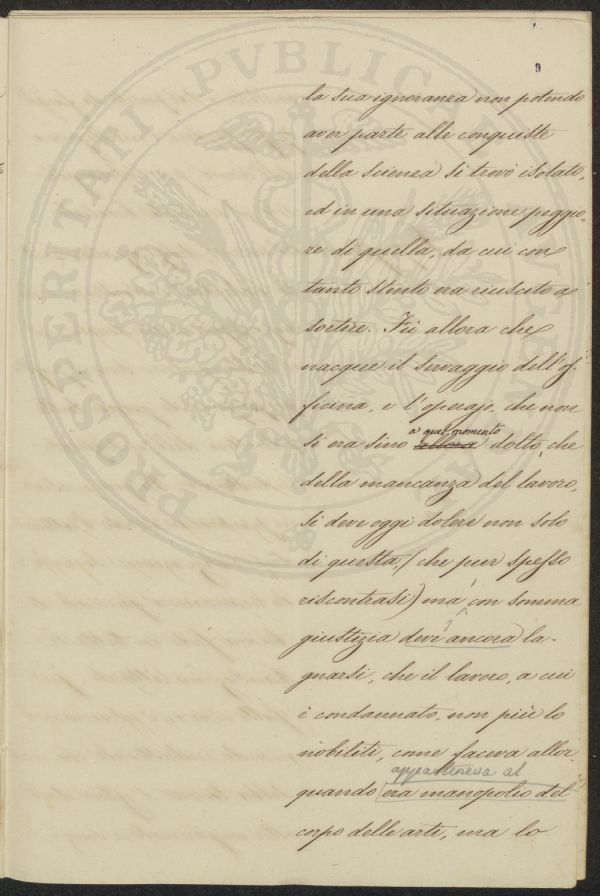 9
la sua ignoranza non potendo
aver parte alle conquiste
della scienza si trovò isolato,
ed in una situazione peggio-
re di quella, da cui con
tanto stento era riuscito a
sortire. Fù allora che
nacque il servaggio dell'of-
ficina, e l'operajo, che non
a quel momento
si era sino allora dolto, che
della mancanza del lavoro,
si deve oggi dolere non solo
di questa, (che pur spesso
riscontrasi) ma con somma
giustizia deve ancora la-
gnarsi, che il lavoro, a cui
è condannato, non più lo
nobiliti, come faceva allor
apparteneva al
quando era manopolio del
corpo delle arte, ma lo
PROSPERITATI PVBLICAE